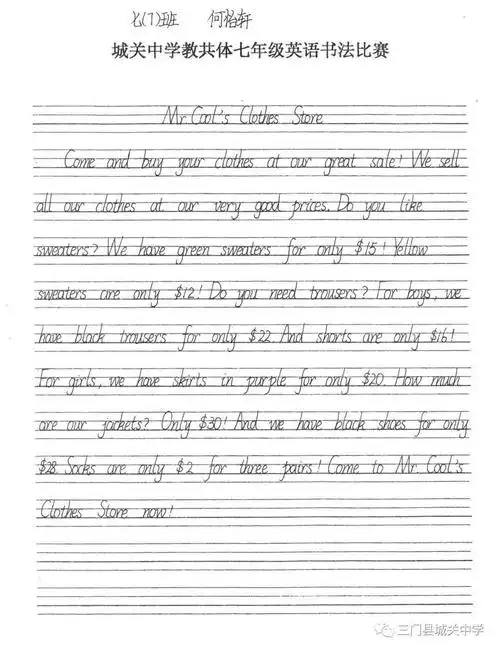 七(7)班 何裕轩
城关中学教共体七年级英语书法比赛
Mr. Cool's Clothes Store
Come and buy your clothes at our great sale! We sell
all our clothes at our very good prices. Do you like
sweaters? We have green sweaters for only $15! Yellow
sweaters are only $12! Do you need trousers? For boys, we
have black trousers for only $22. And shorts are only $16!
For girls, we have skirts in purple for only $20. How much
are our jackets? Only $30! And we have black shoes for only
$28. Socks are only $2 for three pairs! Come to Mr. Cool's
Clothes Store now!
三门县城关中学